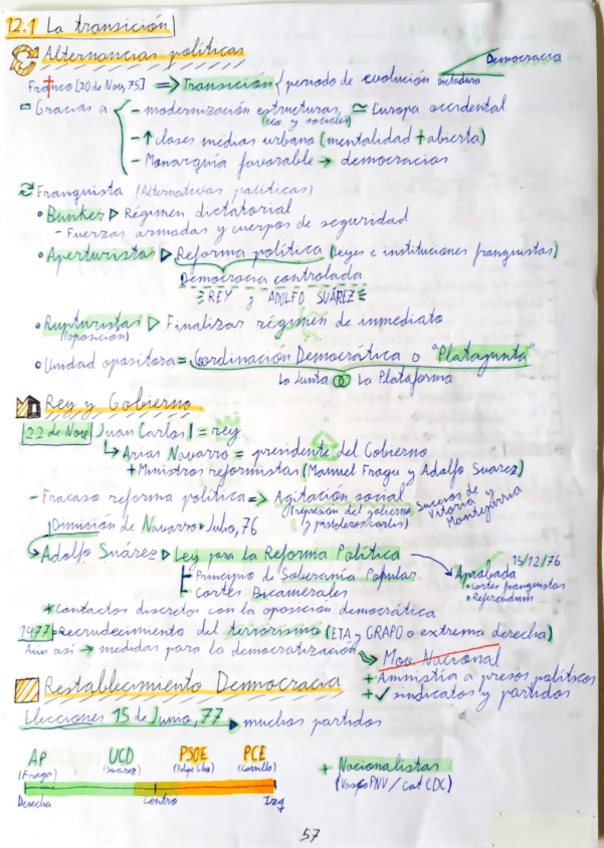 12.1 La transición
Alternancias políticas
Democracia
Franco [20 de Nov, 75] => Transición { periodo de evolución dictadura
- Gracias a { - modernización estructuras ≃ Europa occidental
(eco y sociales)
- ↑ clases medias urbana (mentalidad + abierta)
- Monarquía favorable → democracias
Franquista (Alternativas políticas)
• Bunker ▷ Régimen dictatorial
- Fuerzas armadas y cuerpos de seguridad
• Aperturistas ▷ Reforma política (leyes e instituciones franquistas)
Democracia controlada
REY y ADOLFO SUÁREZ
• Rupturistas ▷ Finalizar régimen de inmediato
(oposición)
• Unidad opositora = Coordinación Democrática o "Platajunta"
La Junta La Plataforma
Rey y Gobierno
22 de Nov Juan Carlos I = rey
↳ Arias Navarro = presidente del Gobierno
+ Ministros reformistas (Manuel Fraga y Adolfo Suarez)
- Fracaso reforma política => Agitación social
(represión del gobierno Sucesos de Vitoria y Montejurra
Dimisión de Navarro Julio, 76
Adolfo Suárez ▷ Ley para la Reforma Política
- Principio de Soberanía Popular
- Cortes Bicamerales
Aprobada 15/12/76
• Cortes franquistas
• Referéndum
* Contactos discretos con la oposición democrática
1977 = Recrudecimiento del terrorismo (ETA y GRAPO o extrema derecha)
Aún así → medidas para la democratización
Mov Nacional
+ Amnistía a presos políticos
+ ✓ sindicatos y partidos
Restablecimiento Democracia
Elecciones 15 de Junio, 77 ▶ muchos partidos
AP UCD PSOE PCE
(Fraga) (Suarez) (Felipe Glez) (Carrillo)
+ Nacionalistas
(Vasco PNV / Cat CDC)
Derecha Centro Izq
57